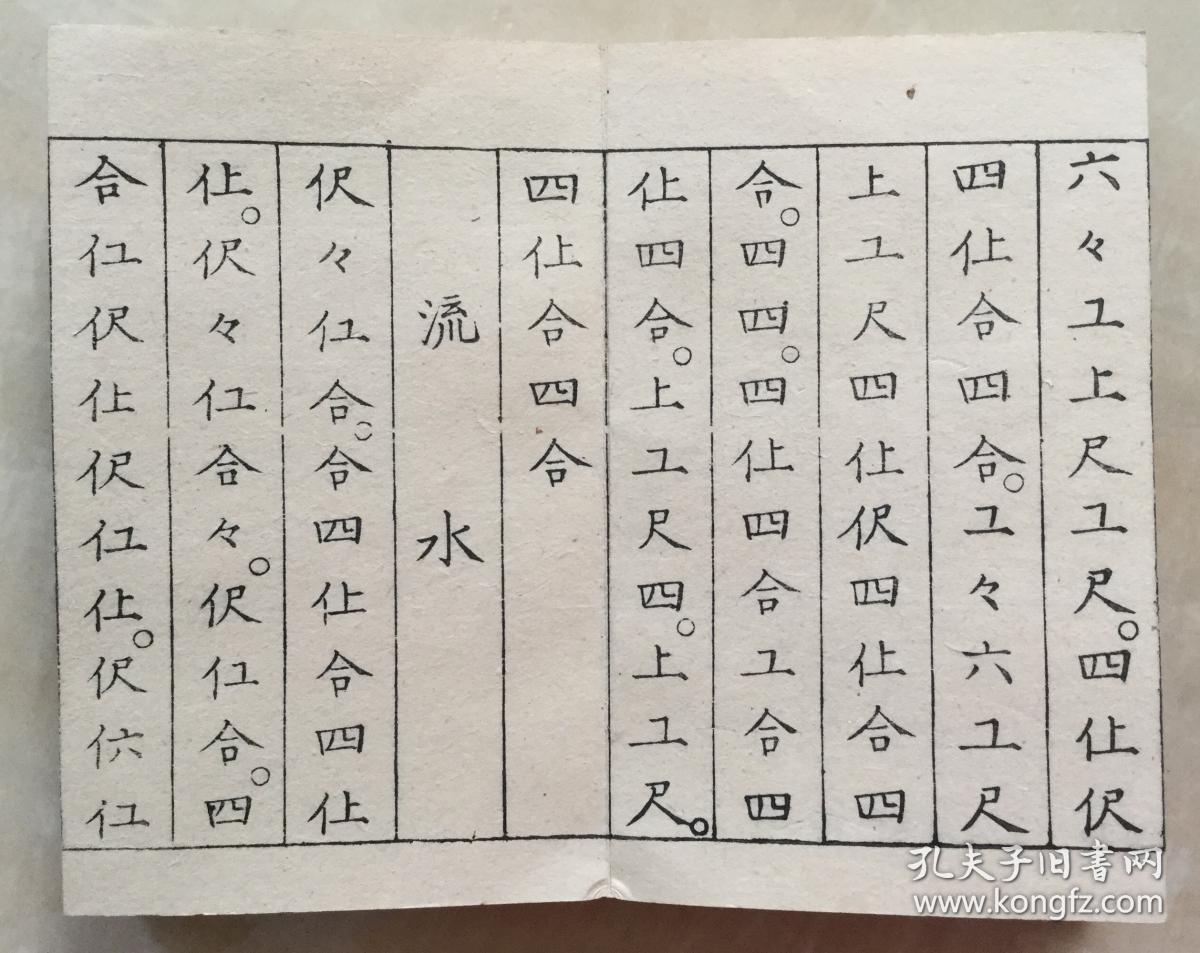 六々工上尺工尺。四仩伬
四仩合四合。工々六工尺
上工尺四仩伬四仩合四
合。四四。四仩四合工合四
仩四合。上工尺四。上工尺。
四仩合四合
流水
伬々仜合。合四仩合四仩
仩。伬々仜合々。伬仜合。四
合仜伬仩伬仜仩。伬𠆾仜
孔夫子旧書网
www.kongfz.com